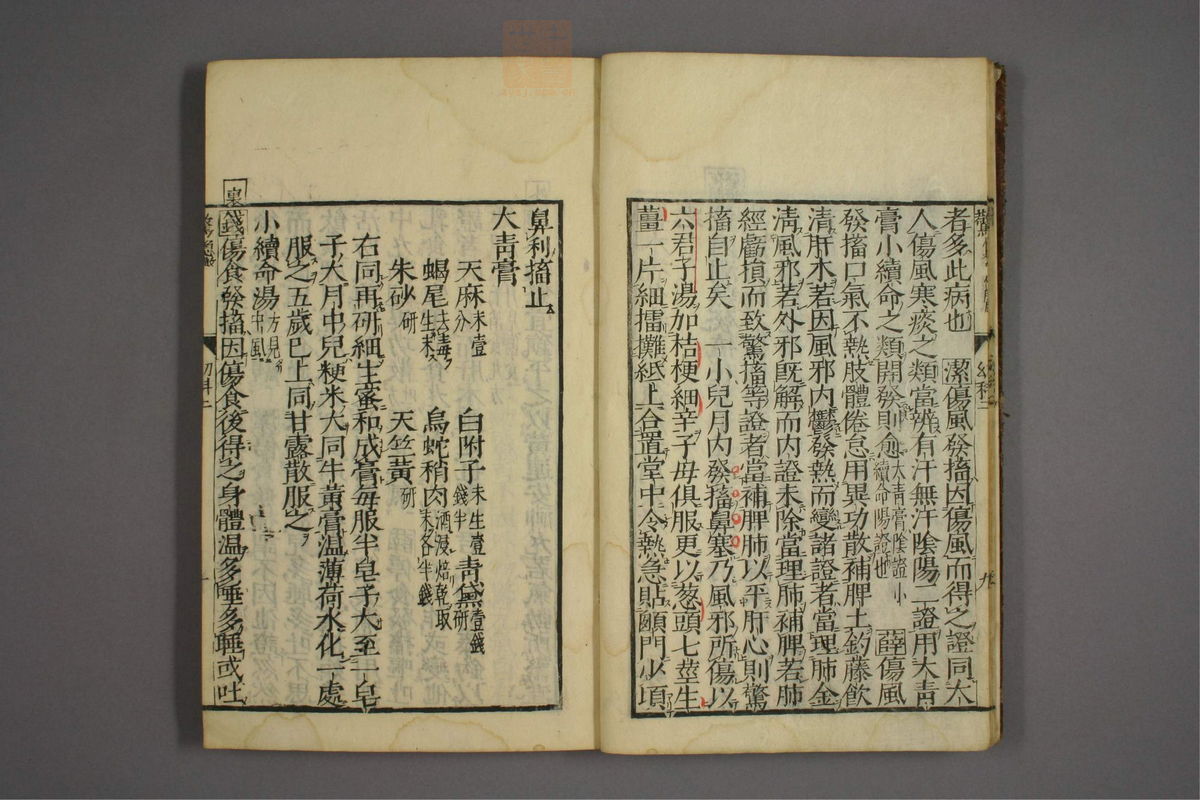 者多此病也　潔傷風發搐因傷風而得之證同大
人傷風寒痰之類當辨有汗無汗陰陽二證用大青
膏小續命之類開發則愈大青膏陰證小續命陽證也　薛傷風
發搐口氣不熱肢體倦怠用異功散補脾土鈎藤飲
清肝木若因風邪内鬱發熱而變諸證者當理肺金
清風邪若外邪既解而内證未除當理肺補脾若肺
經虧損而致驚搐等證者當補脾肺以平肝心則驚
搐自止矣　一小兒月内發搐鼻塞乃風邪所傷以
六君子湯加桔梗細辛子母俱服更以葱頭七莖生
薑一片細擂攤紙上合置掌中令熱急貼顖門少頃
幼科二
鼻利搐止
大青膏
天麻末壹分　白附子末生壹錢半　青黛壹錢研
蝎尾去毒生末　烏蛇稍肉酒浸焙乾取末各半錢
朱砂研　天竺黄研
右同再研細生蜜和成膏每服半皂子大至一皂
子大月中兒粳米大同牛黄膏温薄荷水化一處
服之五歲已上同甘露散服之
小續命湯方見中風
裏
錢傷食發搐因傷食後得之身體温多唾多睡或吐